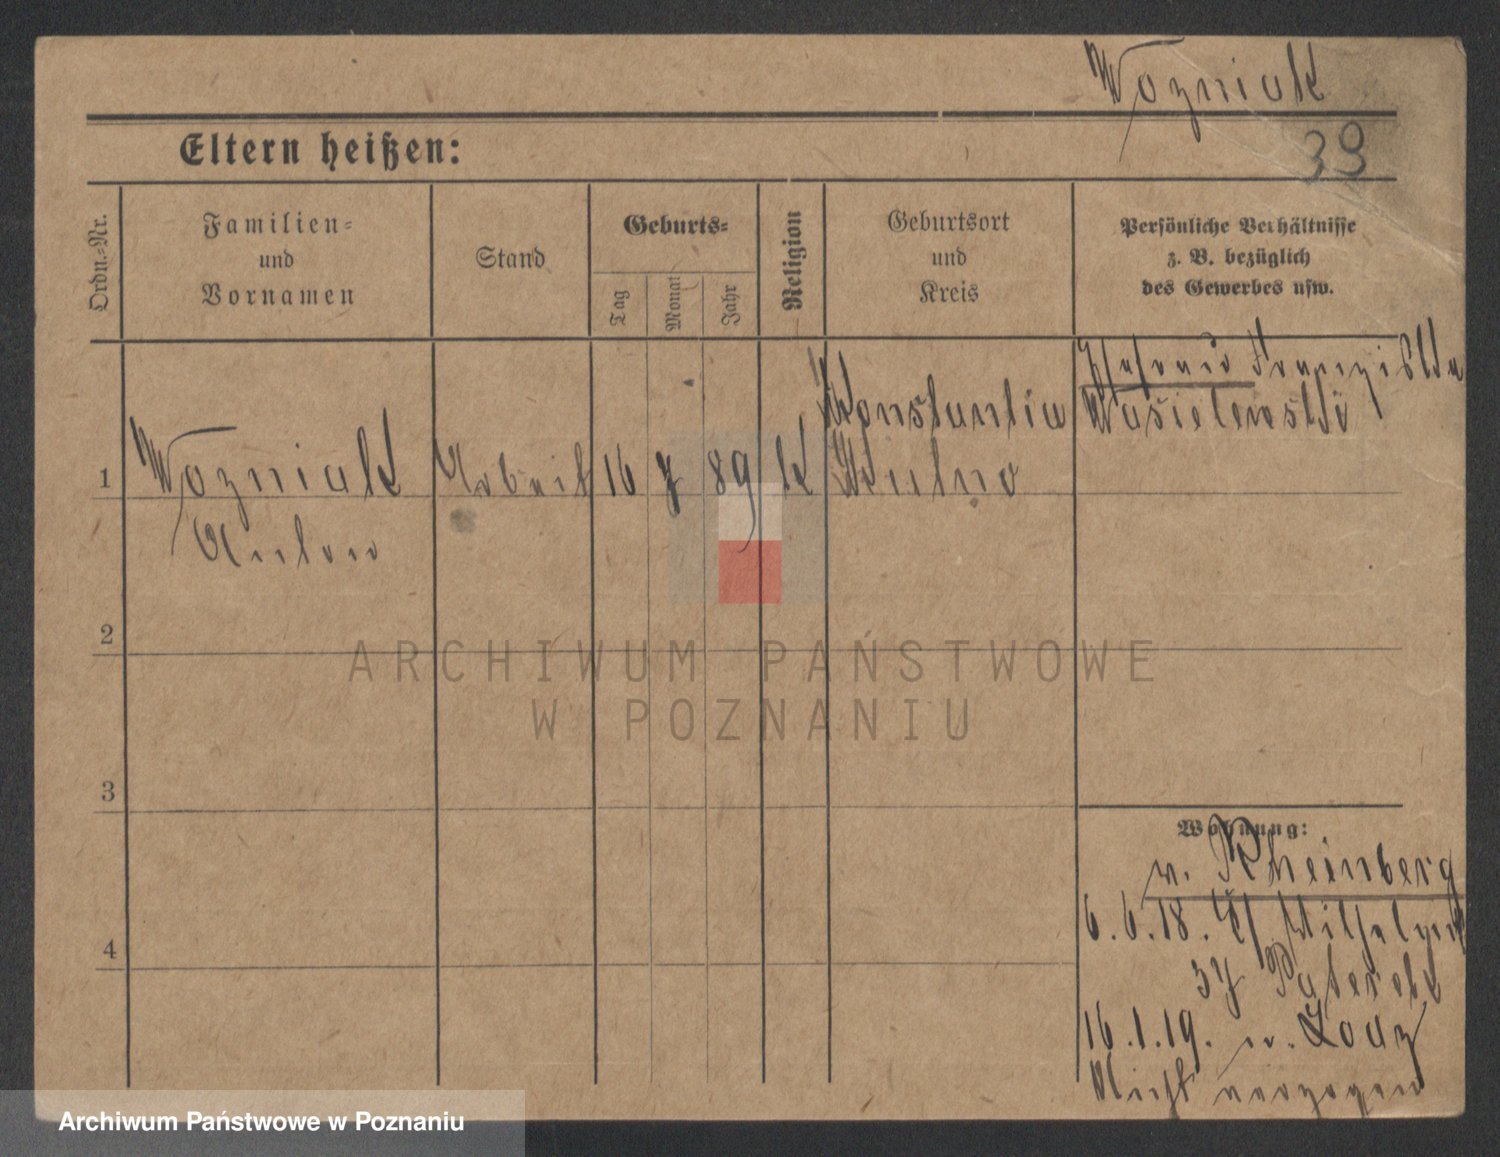 Wozniak
39
Eltern heißen:
Ordn.-Nr.
Familien-
und
Vornamen
Stand
Geburts-
Tag
Monat
Jahr
Religion
Geburtsort
und
Kreis
Persönliche Verhältnisse
z. B. bezüglich
des Gewerbes usw.
1
Wozniak
Anton
Arbeit
16
7
89
k
Kutno
Ehefrau Franziska
2
3
4
Wohnung:
v. Rheinberg
6.6.18.
37 Paterek
16.1.19. n. Lodz
Nicht verzogen
ARCHIWUM PAŃSTWOWE
W POZNANIU
Archiwum Państwowe w Poznaniu